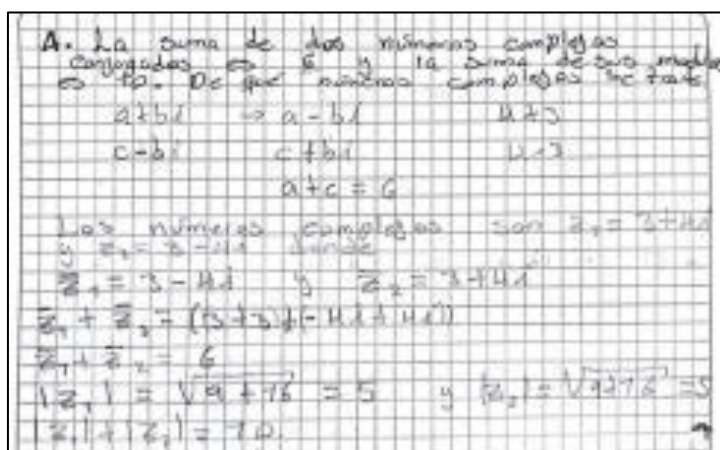 A. La suma de dos números complejos
conjugados es 6 y la suma de sus modulos
es 10. De que números complejos se trata
a+bi → a-bi
c-bi c+bi
a+c = 6
Los números complejos son z₁ = 3+4i
y z₂ = 3-4i donde
z̄₁ = 3-4i y z̄₂ = 3+4i
z̄₁ + z̄₂ = ((3+3)+(-4i+4i))
z̄₁ + z̄₂ = 6
|z₁| = √9+16 = 5 y |z₂| = √9+16 = 5
|z₁|+|z₂| = 10.